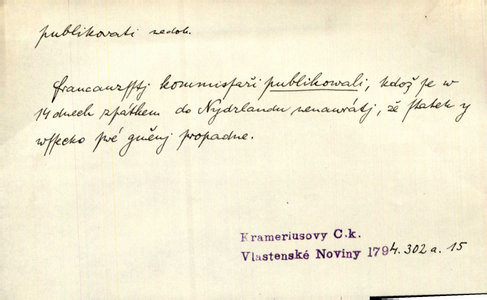 publikovati nedok.
francauzsstj kommissaři publikowali, kdož se w
14 dnech zpátkem do Nydrlandu nenawrátj, že statek y
wssecko swé gměnj propadne.
Krameriusovy C.k.
Vlastenské Noviny 1794. 302 a. 15